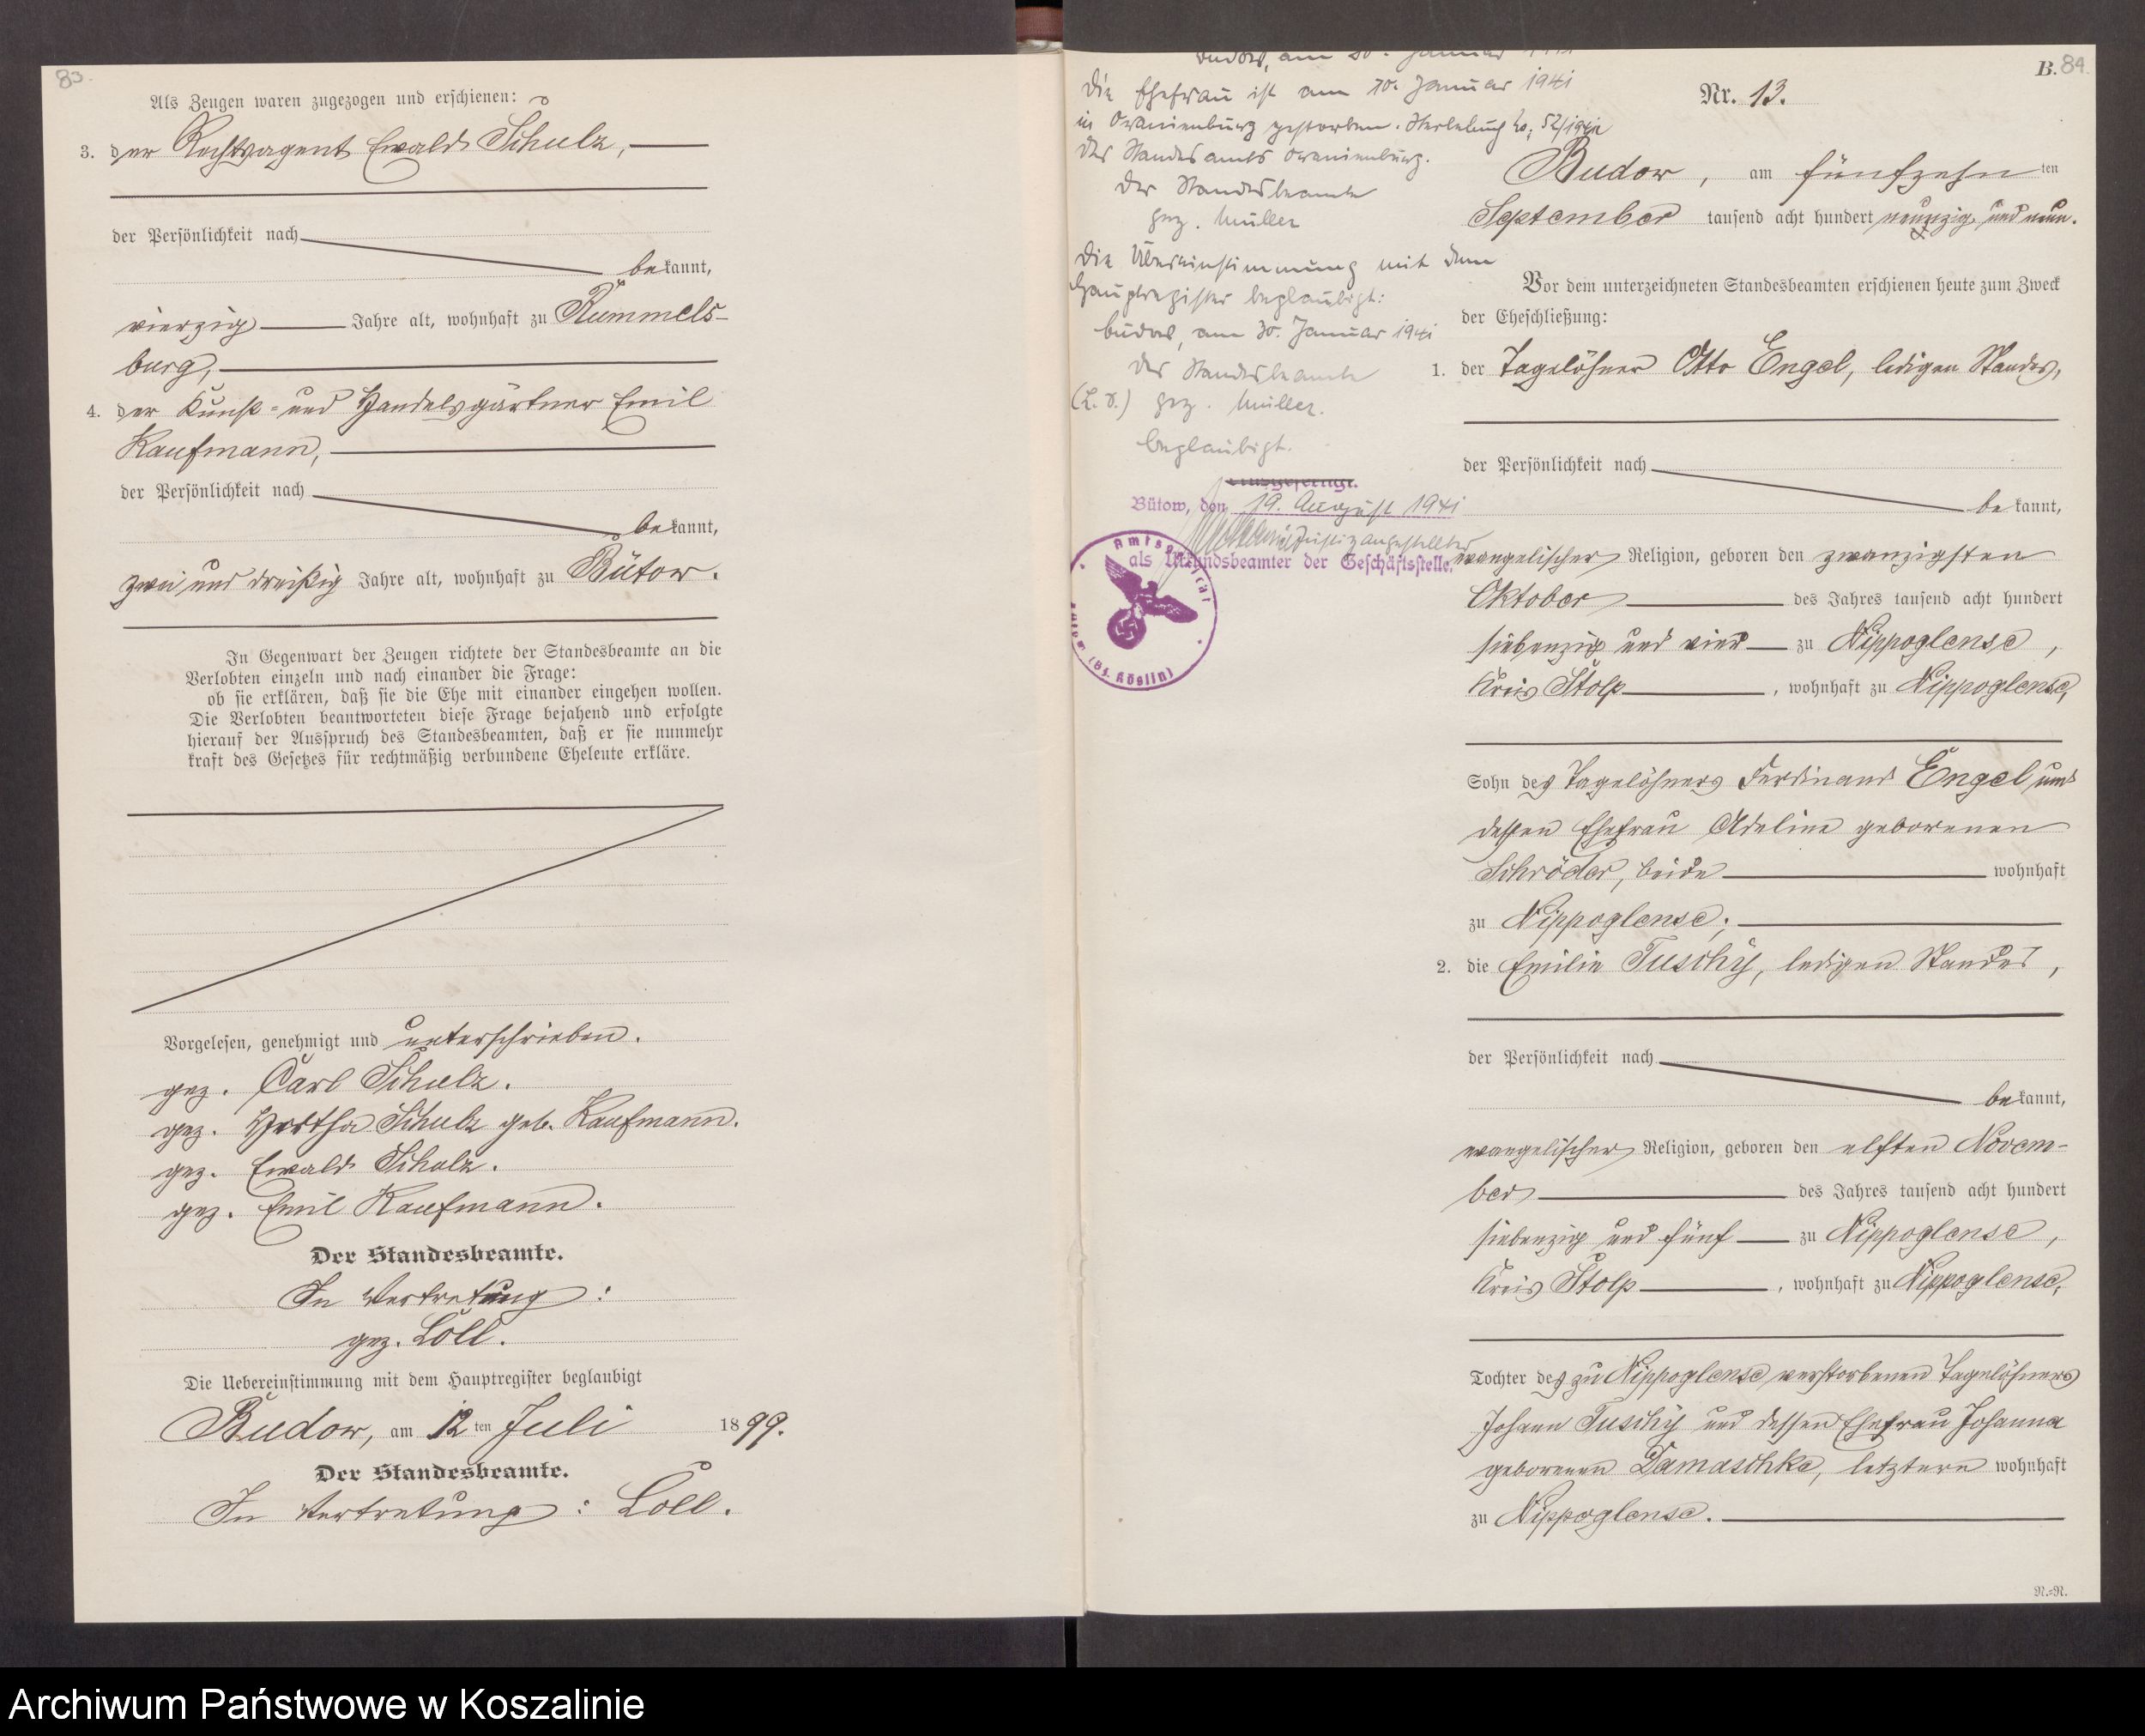 83.
Als Zeugen waren zugezogen und erschienen:
3. der Rechtsagent Ewald Schulz,
der Persönlichkeit nach
bekannt,
vierzig Jahre alt, wohnhaft zu Rummels-
burg,
4. der Kunst- und Handelsgärtner Emil
Kaufmann,
der Persönlichkeit nach
bekannt,
zwei und dreißig Jahre alt, wohnhaft zu Bütow.
In Gegenwart der Zeugen richtete der Standesbeamte an die
Verlobten einzeln und nach einander die Frage:
ob sie erklären, daß sie die Ehe mit einander eingehen wollen.
Die Verlobten beantworteten diese Frage bejahend und erfolgte
hierauf der Ausspruch des Standesbeamten, daß er sie nunmehr
kraft des Gesetzes für rechtmäßig verbundene Eheleute erkläre.
Vorgelesen, genehmigt und unterschrieben.
gez. Carl Schulz.
gez. Hertha Schulz geb. Kaufmann.
gez. Ewald Schulz.
gez. Emil Kaufmann.
Der Standesbeamte.
In Vertretung:
gez. Loll.
Die Uebereinstimmung mit dem Hauptregister beglaubigt
Budow, am 12 ten Juli 1899.
Der Standesbeamte.
In Vertretung: Loll.
Budow, am 30. Januar 1941
Die Ehefrau ist am 10. Januar 1941
in Oranienburg gestorben. Sterbebuch No. 52/1941
des Standesamts Oranienburg.
Der Standesbeamte
gez. Müller
Die Übereinstimmung mit dem
Hauptregister beglaubigt:
Budow, am 30. Januar 1941
Der Standesbeamte
(L. S.) gez. Müller.
beglaubigt.
Bütow, den 19. August 1941
Justizangestellter
als Urkundsbeamter der Geschäftsstelle.
(Bz. Köslin)
B. 84.
Nr. 13.
Budow, am fünfzehn ten
September tausend acht hundert neunzig und neun.
Vor dem unterzeichneten Standesbeamten erschienen heute zum Zweck
der Eheschließung:
1. der Tagelöhner Otto Engel, ledigen Standes,
der Persönlichkeit nach
bekannt,
evangelischer Religion, geboren den zwanzigsten
Oktober des Jahres tausend acht hundert
siebenzig und vier zu Nippoglense,
Kreis Stolp, wohnhaft zu Nippoglense,
Sohn des Tagelöhners Ferdinand Engel und
dessen Ehefrau Adeline geborenen
Schröder, beide wohnhaft
zu Nippoglense;
2. die Emilie Tuschÿ, ledigen Standes,
der Persönlichkeit nach
bekannt,
evangelischer Religion, geboren den elften Novem-
ber des Jahres tausend acht hundert
siebenzig und fünf zu Nippoglense,
Kreis Stolp, wohnhaft zu Nippoglense,
Tochter des zu Nippoglense verstorbenen Tagelöhners
Johann Tuschÿ und dessen Ehefrau Johanna
geborenen Damaschke, letztere wohnhaft
zu Nippoglense.
N.-N.
Archiwum Państwowe w Koszalinie